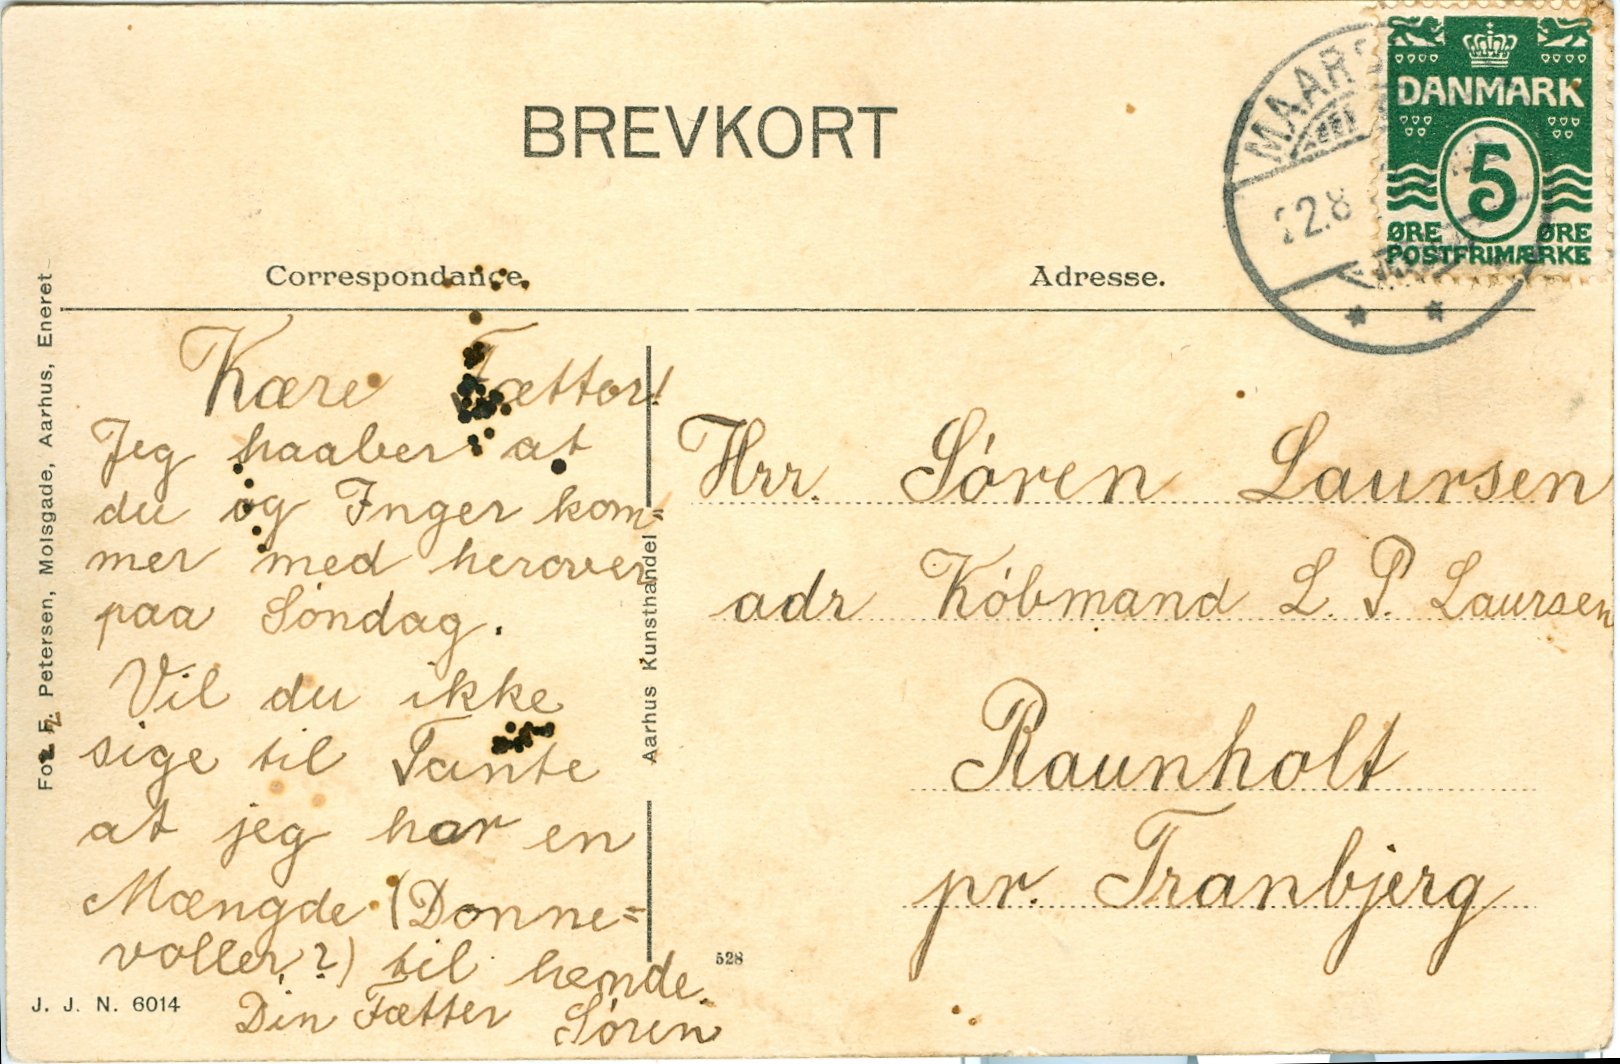 BREVKORT
DANMARK
5
ØRE ØRE
POSTFRIMÆRKE
MAARS
22.8
Correspondance.
Adresse.
Kære Fætter!
Jeg haaber at
du og Inger kom=
mer med herover
paa Søndag.
Vil du ikke
sige til Tante
at jeg har en
Mængde (Donne=
voller?) til hende.
Din Fætter Søren
Hrr. Søren Laursen
adr Købmand L. P. Laursen
Raunholt
pr. Tranbjerg
Petersen, Molsgade, Aarhus, Eneret
Aarhus Kunsthandel
528
J. J. N. 6014